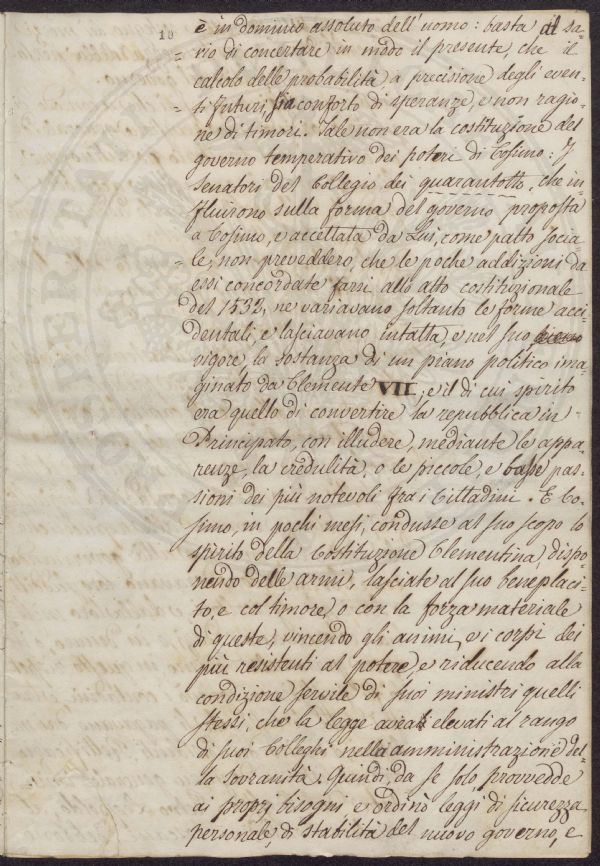 10
è in dominio assoluto dell'uomo: basta al sa-
vio di concertare in modo il presente, che il
calcolo delle probabilità a precisione degli even-
ti futuri, sia conforto di speranze, e non ragio-
ne di timori. Tale non era la costituzione del
governo temperativo dei poteri di Cosimo: I
Senatori del Collegio dei quarantotto, che in-
fluirono sulla forma del governo proposta
a Cosimo, e accettata da Lui, come patto socia-
le, non preveddero, che le poche addizioni da
essi concordate farsi allo atto costituzionale
del 1532, ne variavano soltanto le forme acci-
dentali, e lasciavano intatta, e nel suo
vigore, la sostanza di un piano politico ima-
ginato da Clemente VII, e il di cui spirito
era quello di convertire la repubblica in
Principato, con illudere, mediante le appa-
renze, la credulità, o le piccole, e basse pas-
sioni dei più notevoli fra i Cittadini. E Co-
simo, in pochi mesi, condusse al suo scopo lo
spirito della Costituzione Clementina, dispo-
nendo delle armi, lasciate al suo beneplaci-
to, e col timore, o con la forza materiale
di queste, vincendo gli animi, e i corpi dei
più resistenti al potere, e riducendo alla
condizione servile di suoi ministri quelli
stessi, che la legge avea elevati al rango
di suoi Colleghi nella amministrazione del-
la Sovranità. Quindi, da se solo, provvedde
ai proprj bisogni e ordinò leggi di sicurezza
personale, di stabilità del nuovo governo, e